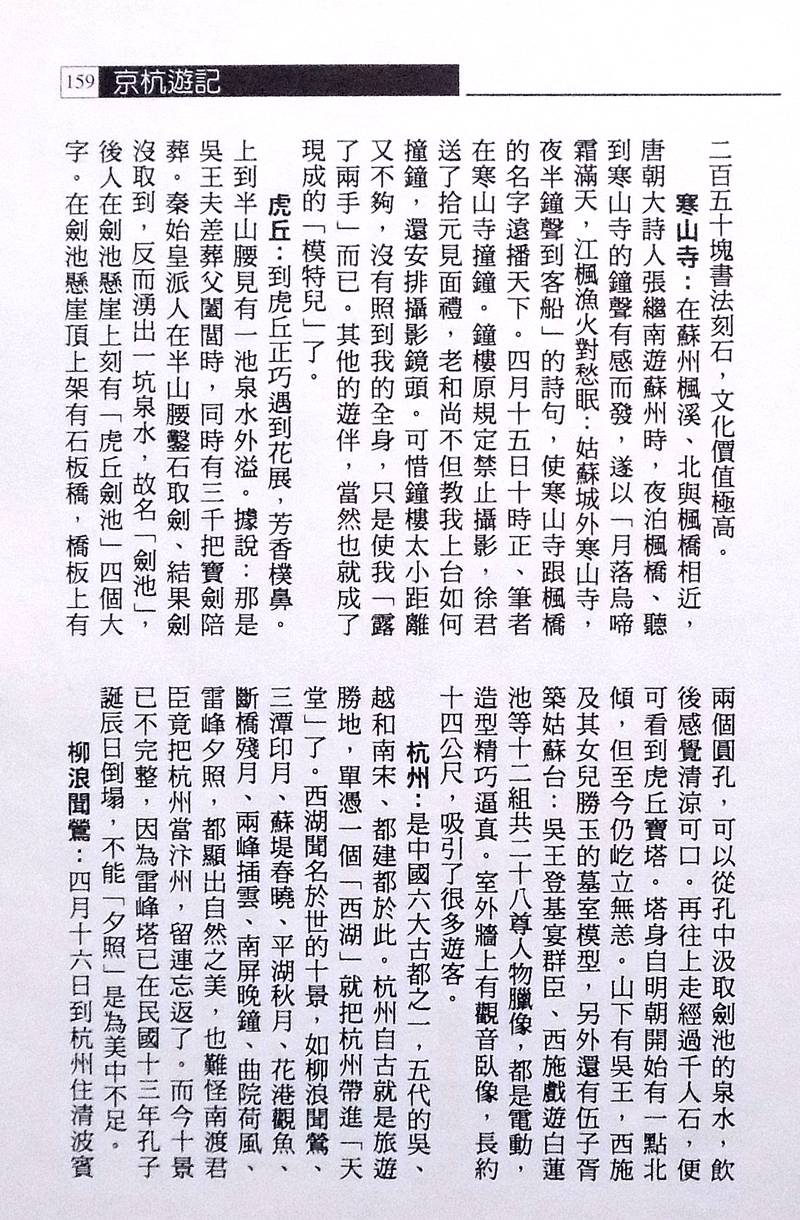 159 京杭遊記
二百五十塊書法刻石，文化價值極高。
寒山寺：在蘇州楓溪、北與楓橋相近，
唐朝大詩人張繼南遊蘇州時，夜泊楓橋、聽
到寒山寺的鐘聲有感而發，遂以「月落烏啼
霜滿天，江楓漁火對愁眠：姑蘇城外寒山寺，
夜半鐘聲到客船」的詩句，使寒山寺跟楓橋
的名字遠播天下。四月十五日十時正、筆者
在寒山寺撞鐘。鐘樓原規定禁止攝影，徐君
送了拾元見面禮，老和尚不但教我上台如何
撞鐘，還安排攝影鏡頭。可惜鐘樓太小距離
又不夠，沒有照到我的全身，只是使我「露
了兩手」而已。其他的遊伴，當然也就成了
現成的「模特兒」了。
虎丘：到虎丘正巧遇到花展，芳香樸鼻。
上到半山腰見有一池泉水外溢。據說：那是
吳王夫差葬父闔閭時，同時有三千把寶劍陪
葬。秦始皇派人在半山腰鑿石取劍、結果劍
沒取到，反而湧出一坑泉水，故名「劍池」，
後人在劍池懸崖上刻有「虎丘劍池」四個大
字。在劍池懸崖頂上架有石板橋，橋板上有
兩個圓孔，可以從孔中汲取劍池的泉水，飲
後感覺清涼可口。再往上走經過千人石，便
可看到虎丘寶塔。塔身自明朝開始有一點北
傾，但至今仍屹立無恙。山下有吳王，西施
及其女兒勝玉的墓室模型，另外還有伍子胥
築姑蘇台：吳王登基宴群臣、西施戲遊白蓮
池等十二組共二十八尊人物臘像，都是電動，
造型精巧逼真。室外牆上有觀音臥像，長約
十四公尺，吸引了很多遊客。
杭州：是中國六大古都之一，五代的吳、
越和南宋、都建都於此。杭州自古就是旅遊
勝地，單憑一個「西湖」就把杭州帶進「天
堂」了。西湖聞名於世的十景，如柳浪聞鶯、
三潭印月、蘇堤春曉、平湖秋月、花港觀魚、
斷橋殘月、兩峰插雲、南屏晚鐘、曲院荷風、
雷峰夕照，都顯出自然之美，也難怪南渡君
臣竟把杭州當汴州，留連忘返了。而今十景
已不完整，因為雷峰塔已在民國十三年孔子
誕辰日倒塌，不能「夕照」是為美中不足。
柳浪聞鶯：四月十六日到杭州住清波賓